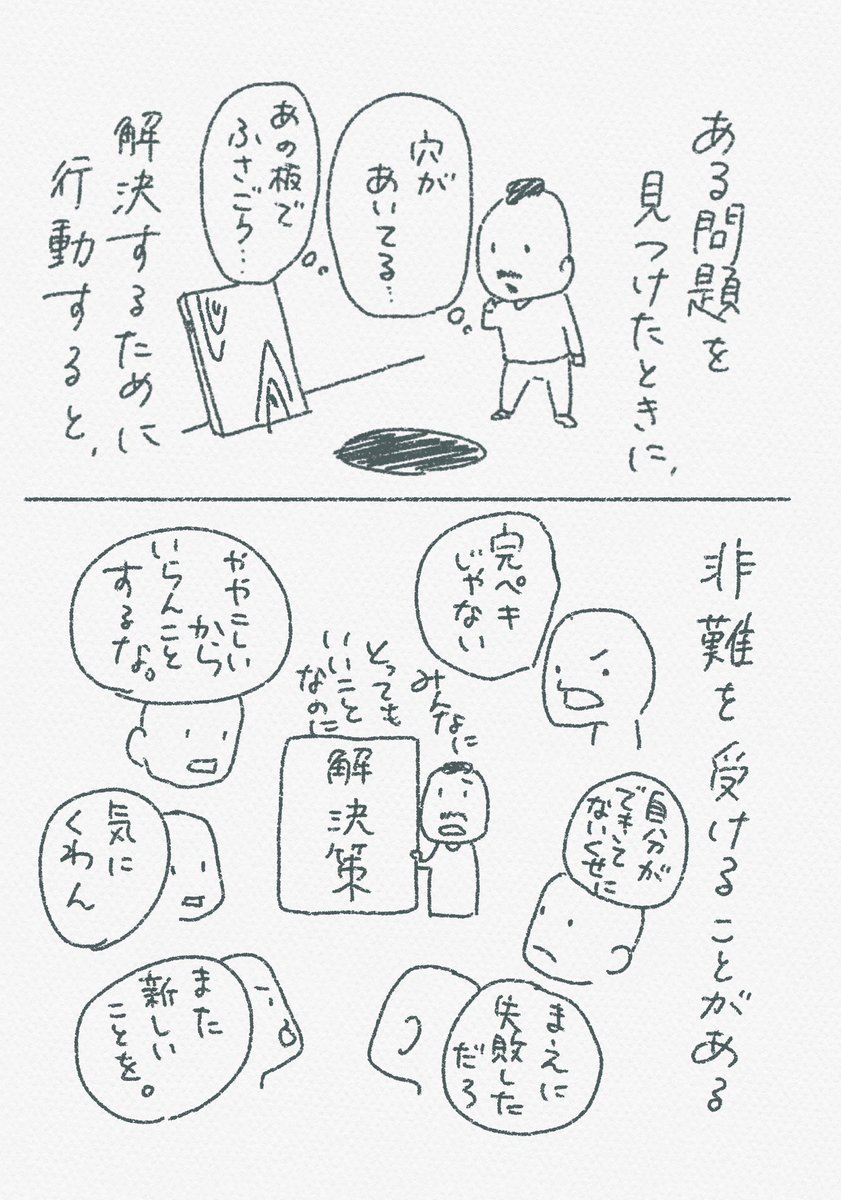 ある問題を
見つけたときに、
穴が
あいてる…
あの板で
ふさごう…
解決するために
行動すると、
非難を受けることがある
完ペキ
じゃない
みんなに
とっても
いいこと
なのに
解決策
ややこしい
から
いらんこと
するな。
自分が
できて
ないくせに
気に
くわん
まえに
失敗した
だろ
また
新しい
ことを。